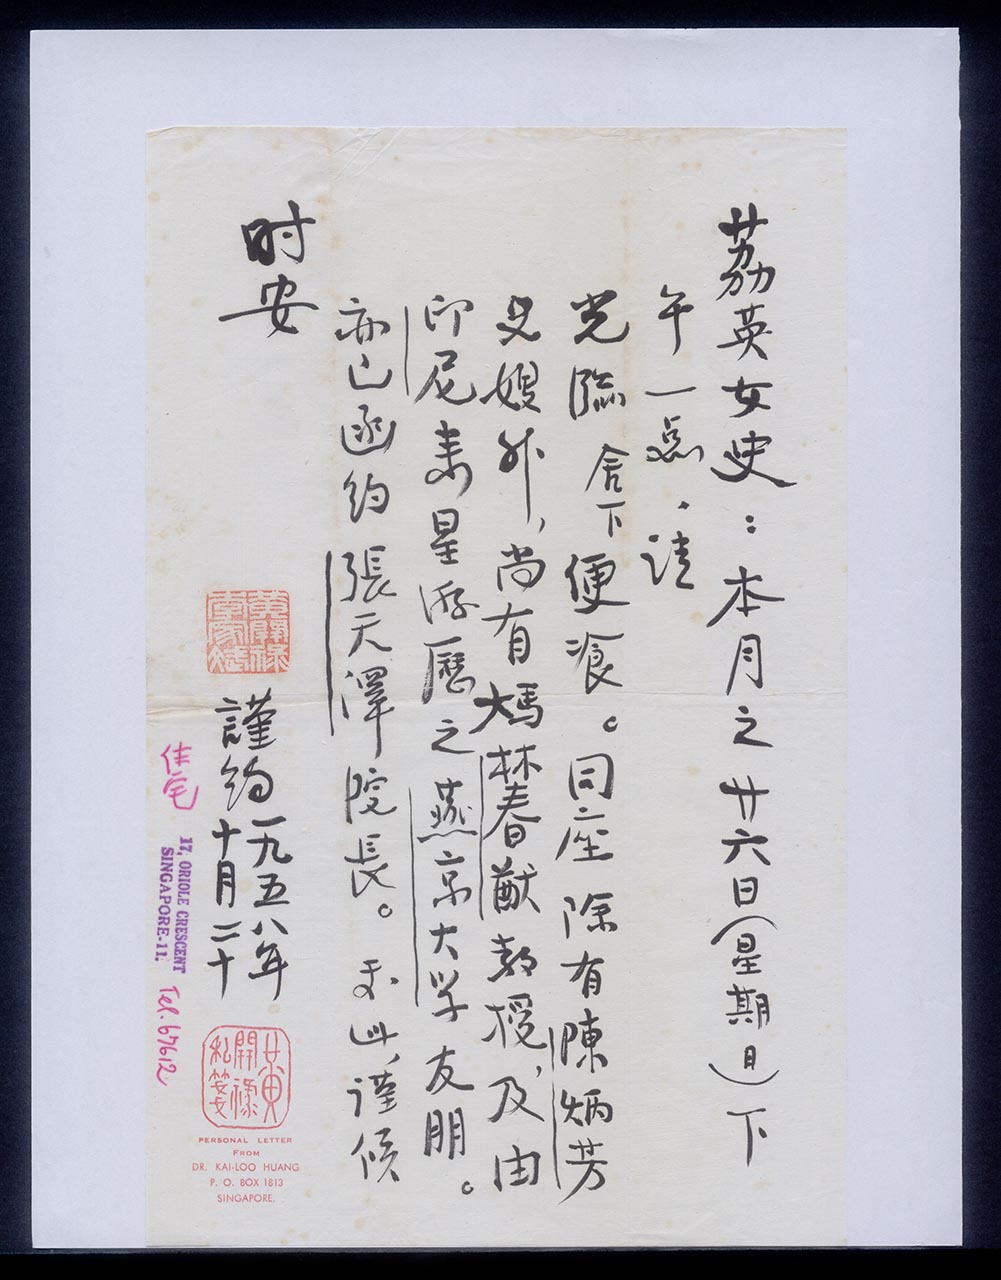 荔英女史：本月之廿六日（星期日）下
午一点，请
光臨 舍下便飡。同座除有陳炳芳
兄嫂外，尚有馮林春猷教授，及由
印尼来星游歷之燕京大学友朋。
亦已函约張天澤院長。专此，谨候
时安
黃開祿
謹約 一九五八年
十月二十
黃開祿
私箋
住宅
17, ORIOLE CRESCENT
SINGAPORE-11.
Tel. 67612
PERSONAL LETTER
FROM
DR. KAI-LOO HUANG
P. O. BOX 1813
SINGAPORE.